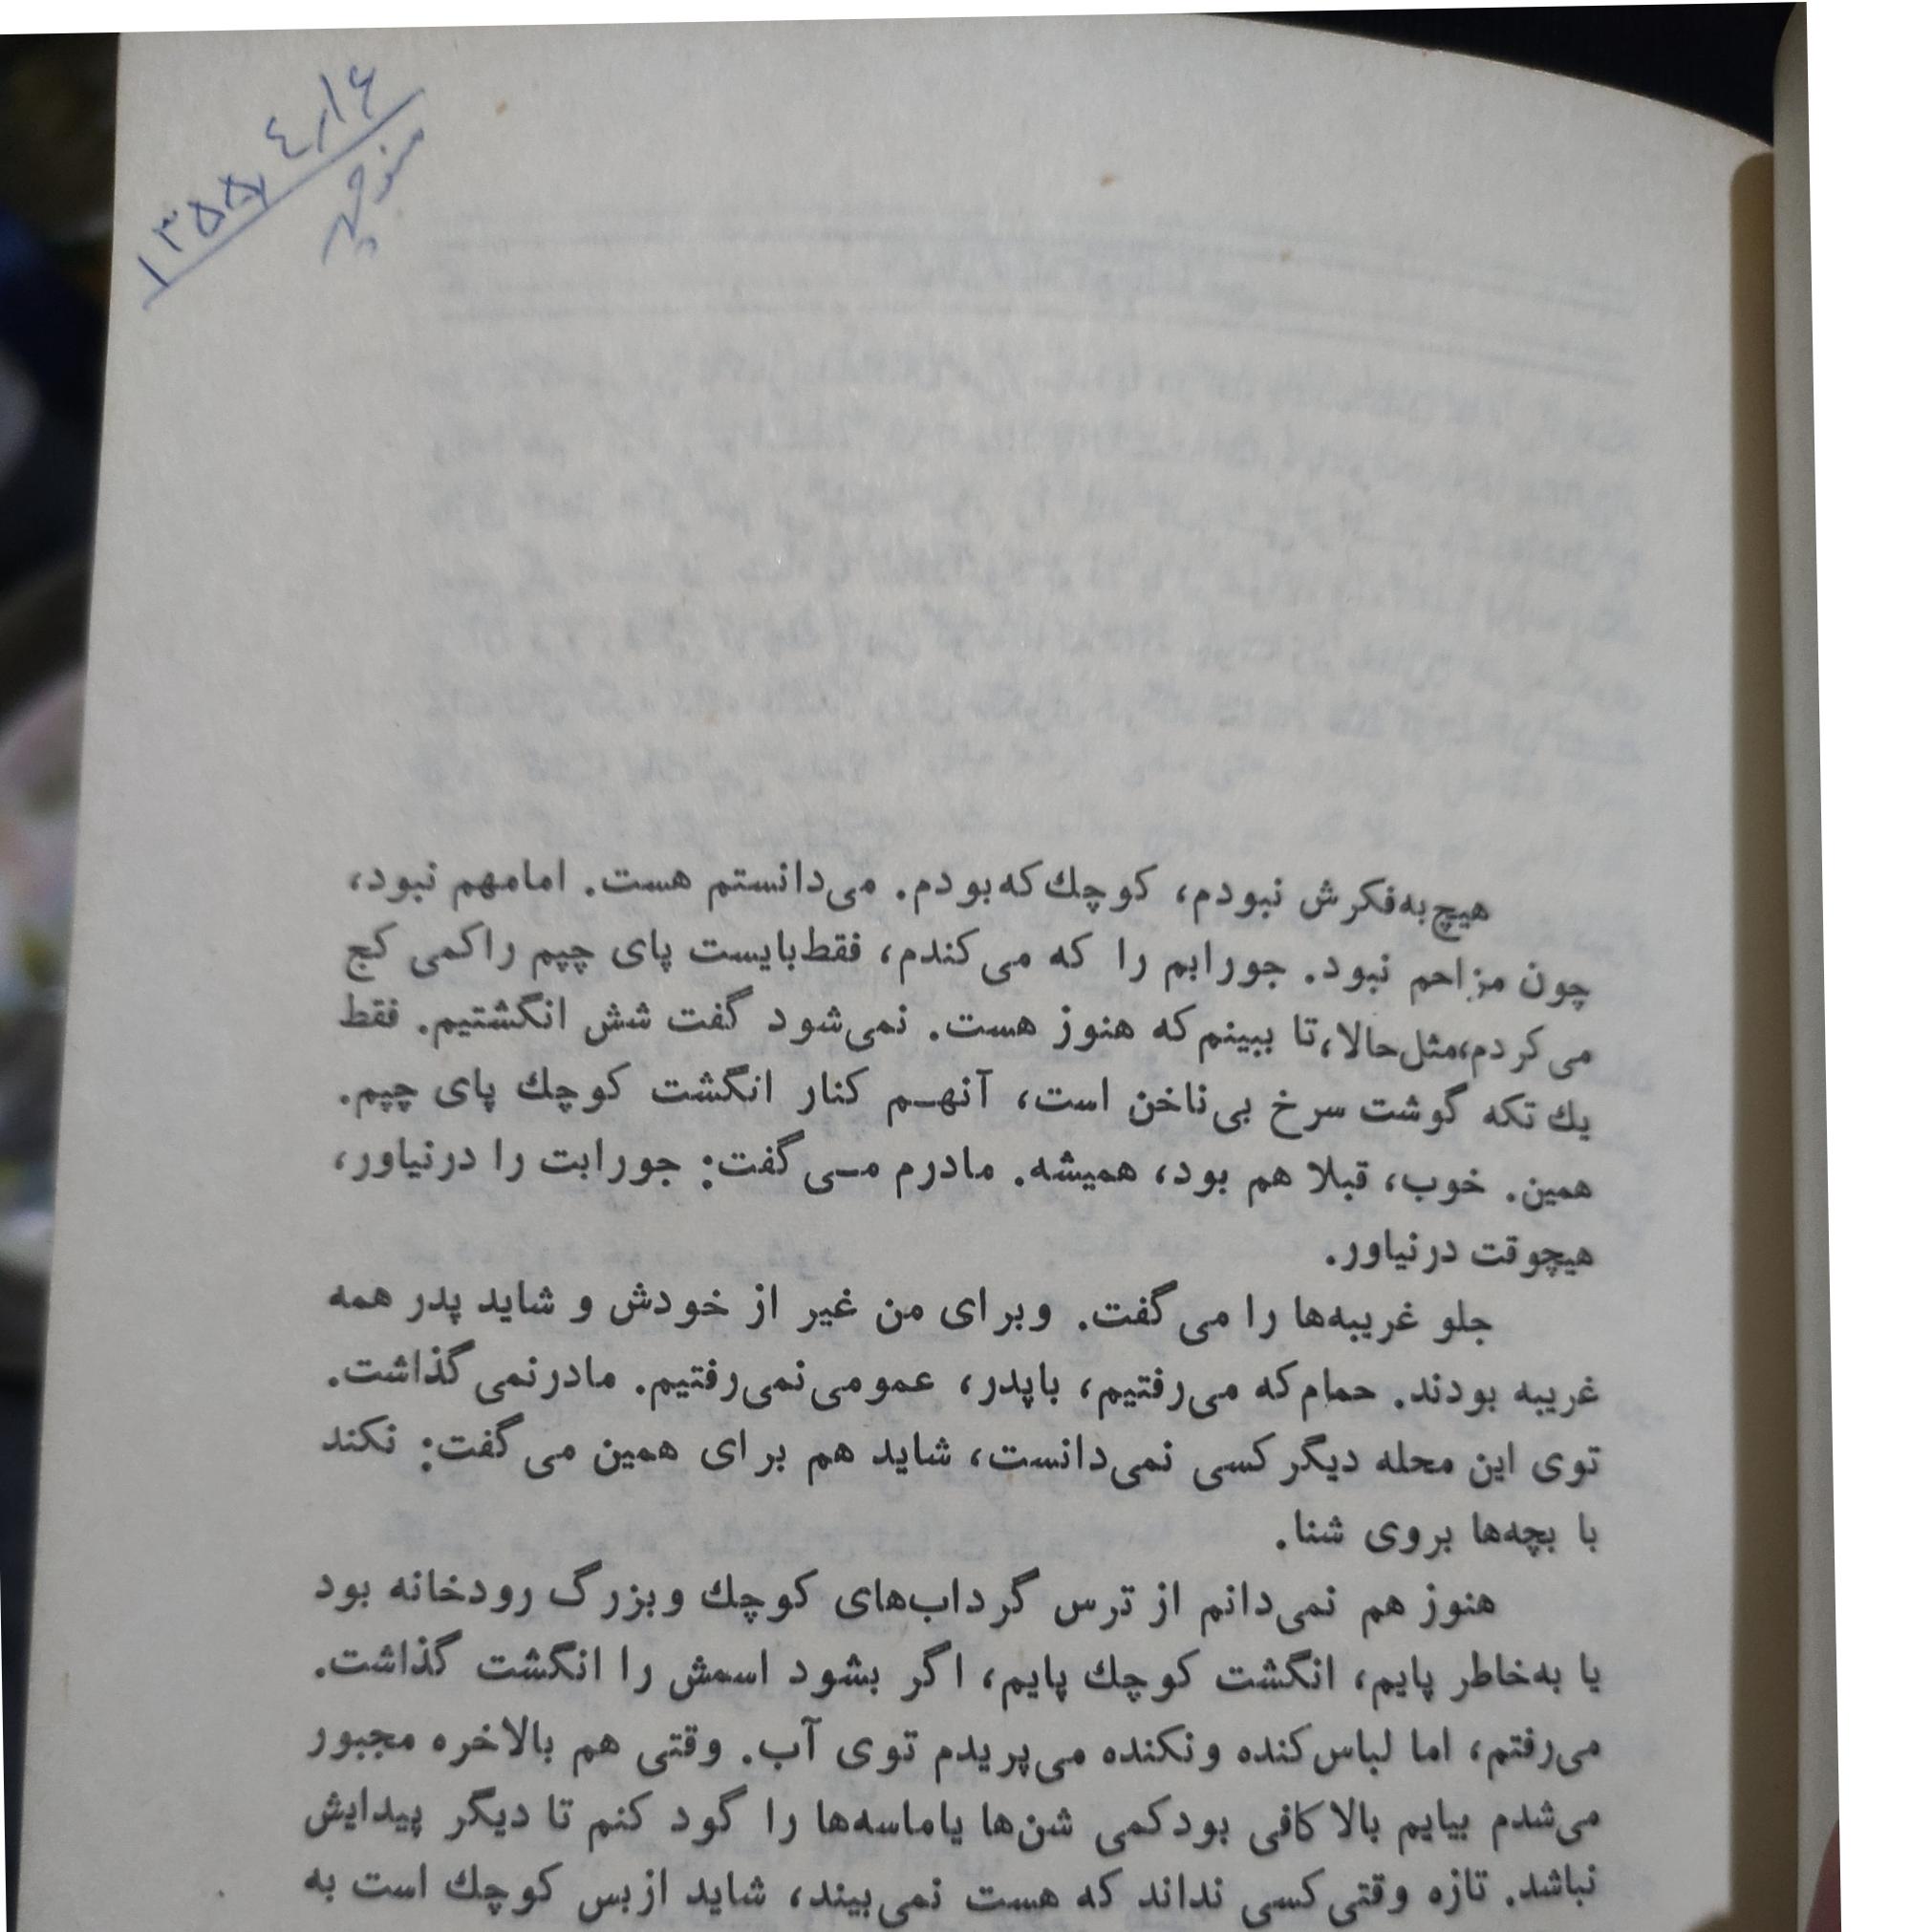 ۴/۱۶
۱۳۵۵۷
منوچهر
هیچ‌به‌فکرش نبودم، کوچك‌که‌بودم. می‌دانستم هست. امامهم نبود،
چون مزاحم نبود. جورابم را که می‌کندم، فقط‌بایست پای چپم راکمی کج
می‌کردم،مثل‌حالا،تا ببینم‌که هنوز هست. نمی‌شود گفت شش انگشتیم. فقط
یك تکه گوشت سرخ بی‌ناخن است، آنهـم کنار انگشت کوچك پای چپم.
همین. خوب، قبلا هم بود، همیشه. مادرم مـی‌گفت: جورابت را درنیاور،
هیچوقت درنیاور.
جلو غریبه‌ها را می‌گفت. وبرای من غیر از خودش و شاید پدر همه
غریبه بودند. حمام‌که می‌رفتیم، باپدر، عمومی‌نمی‌رفتیم. مادرنمی‌گذاشت.
توی این محله دیگرکسی نمی‌دانست، شاید هم برای همین می‌گفت: نکند
با بچه‌ها بروی شنا.
هنوز هم نمی‌دانم از ترس گرداب‌های کوچك وبزرگ رودخانه بود
یا به‌خاطر پایم، انگشت کوچك پایم، اگر بشود اسمش را انگشت گذاشت.
می‌رفتم، اما لباس‌کنده ونکنده می‌پریدم توی آب. وقتی هم بالاخره مجبور
می‌شدم بیایم بالاکافی بودکمی شن‌ها یاماسه‌ها را گود کنم تا دیگر پیدایش
نباشد. تازه وقتی‌کسی نداند که هست نمی‌بیند، شاید ازبس کوچك است به